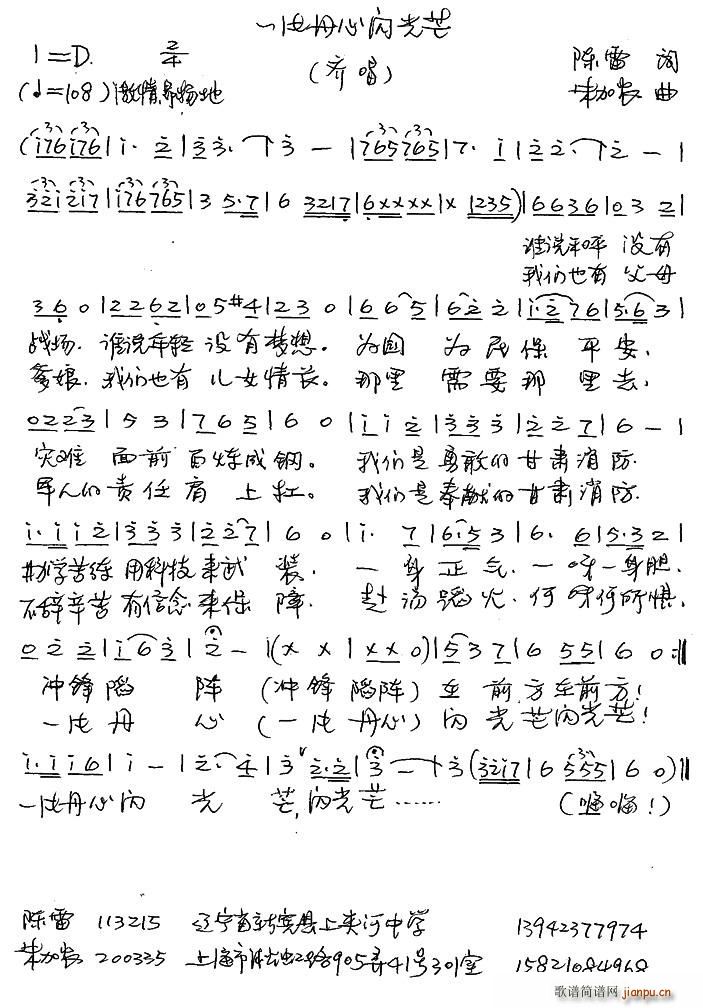 一片丹心闪光芒
1=D. 2/4 （齐唱） 陈雷 词
(♩=108)激情昂扬地 荣加农 曲
(i76 i76 | i· 2 | 3 3· | 3 — | 765 765 | 7· i | 2 2· | 2 — |
32i 2i7 | i76 765 | 3 5·7 | 6 3217 | 6xxxx | x 1235) | 6636 | 0 3 2 |
谁说和平 没有
我们也有 父母
3 6 0 | 2262 | 0 5 #4 | 2 3 0 | 6 6 5 | 6 2 2 | i·2 7 6 | 5·6 3 |
战场．谁说年轻 没有梦想。 为国 为民保 平安，
爹娘．我们也有 儿女情长。 那里 需要那 里去，
0 2 2 3 | 5 3 | 7 6 5 | 6 0 | i i 2 | 3 3 3 | 2 2 7 | 6 — |
灾难 面前 百炼成钢。 我们是勇敢的甘肃消防．
军人的责任肩 上扛。 我们是奉献的甘肃消防．
i· i i 2 | 3 3 3 | 2 2 7 | 6 0 | i· 7 | 6·5 3 | 6· 6 | 5·3 2 |
勤学苦练 用科技来武 装． 一身正气．一呀一身胆．
不辞辛苦 有信念来保 障． 赴汤蹈火．何呀何所惧．
0 2 2 | i 6 3 | 2 — | (x x | x x 0) | 5 3 7 | 6 5 5 | 6 0 :||
冲锋陷 阵 (冲锋陷阵) 在前方在前方！
一片丹 心 (一片丹心) 闪光芒闪光芒！
i· i i 6 | i — | 2· 4 | 3 ∨ 2·2 | 3 — | 3 (32i7 | 6 555 | 6 0) ||
一片丹心闪 光 芒，闪光芒…… （嗨嗨！）
陈雷 113215 辽宁省新宾县上夹河中学 13942377974
荣加农 200335 上海市 905弄41号301室 15821084968
歌谱简谱网
jianpu.cn